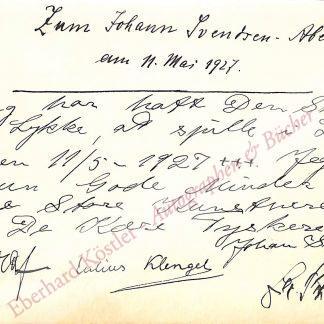 Zum Johann Svendsen-Abe
am 11. Mai 1927.
har haft Den S
Lykke, at spille i L
en 11/5 - 1927 +++ Jeg
un Gode Minder
Store Kunstnere
De Kære Tyskere
Johan
Julius Klengel
Eberhard Köstler - Autographen & Bücher